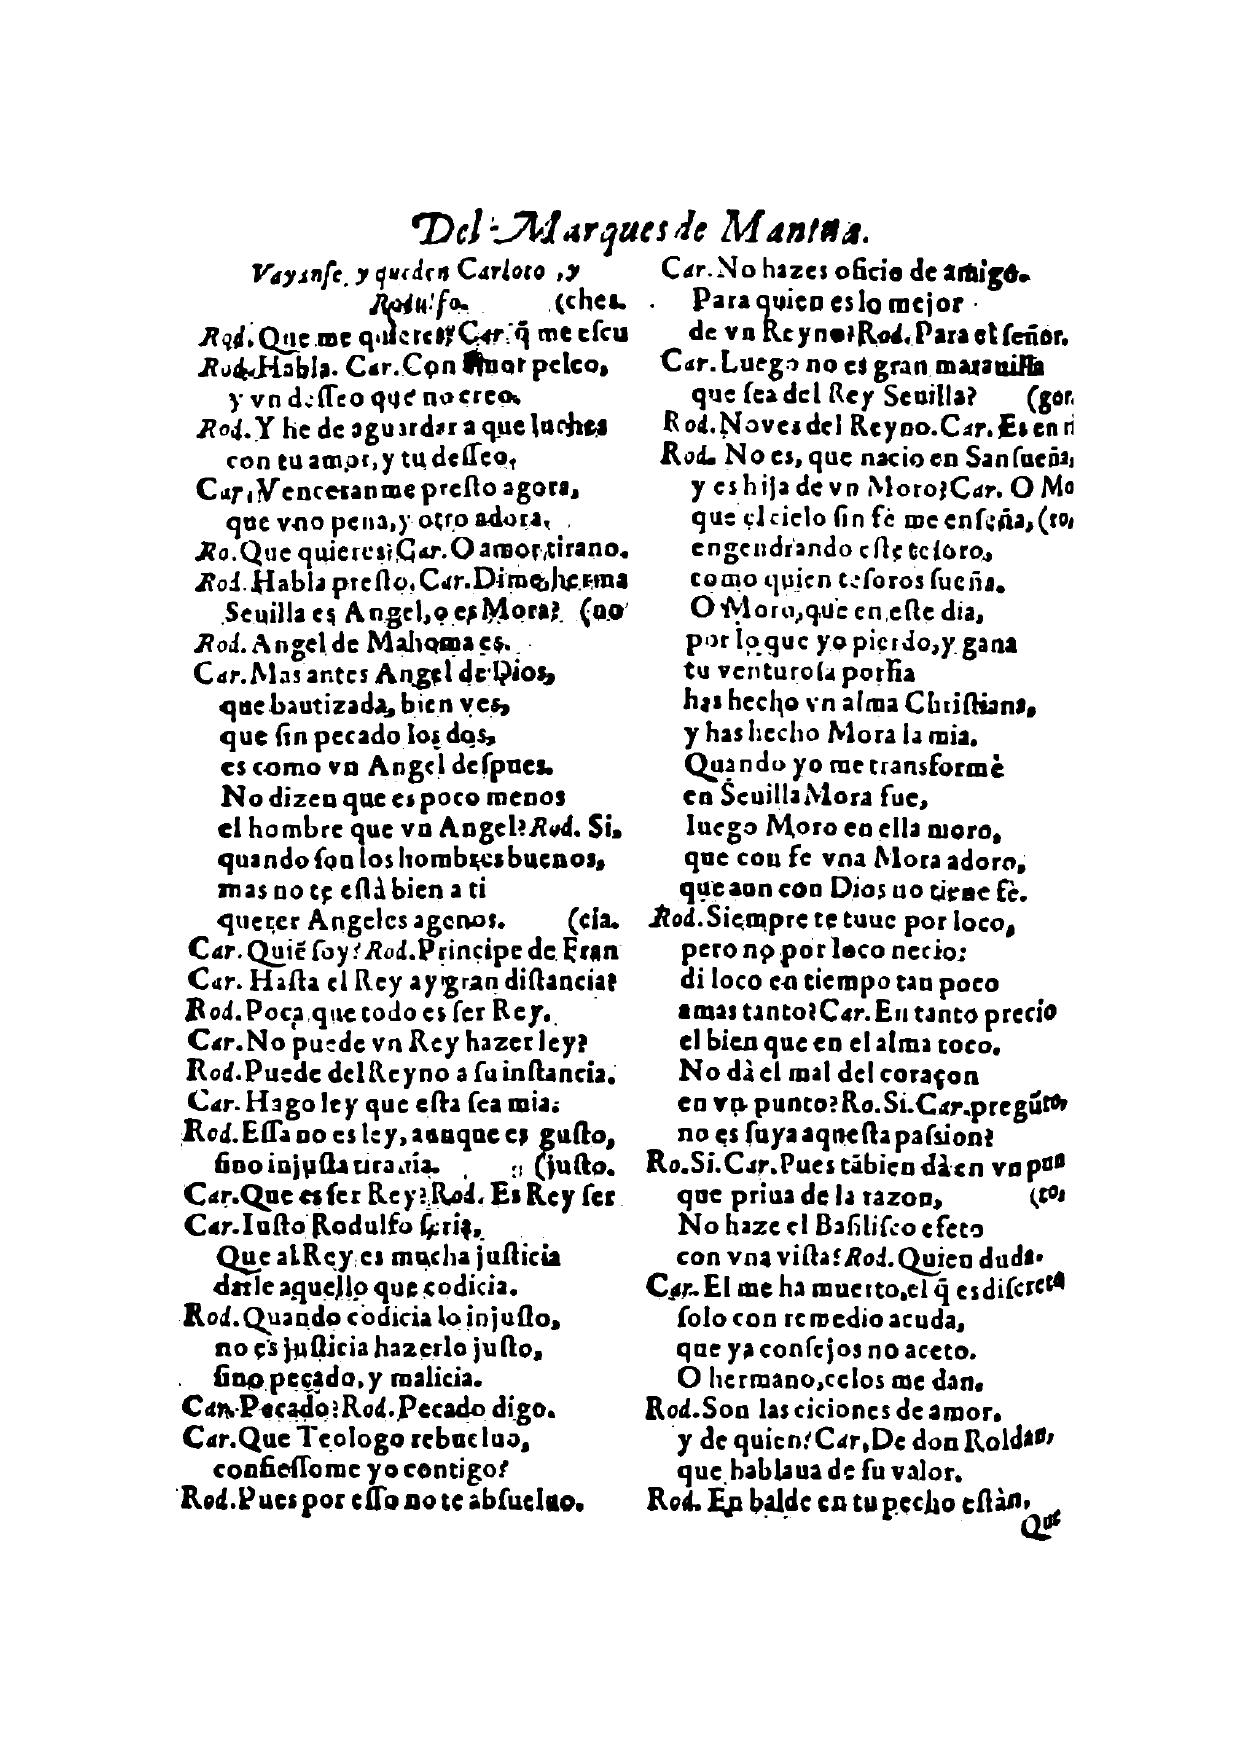 Del Marques de Mantua.
Vayanse, y queden Carloto, y
Rodulfo. (ches.
Rod. Que me quieres? Car. q̃ me escu
Rod. Habla. Car. Con amor peleo,
y vn desseo que no creo.
Rod. Y he de aguardar a que luches
con tu amor, y tu desseo,
Car. Venceranme presto agora,
que vno pena, y otro adora,
Ro. Que quieres? Car. O amor tirano.
Rod. Habla presto. Car. Dime, herma
Seuilla es Angel, o es Mora? (no
Rod. Angel de Mahoma es.
Car. Mas antes Angel de Dios,
que bautizada, bien ves,
que sin pecado los dos,
es como vn Angel despues.
No dizen que es poco menos
el hombre que vn Angel? Rod. Si.
quando son los hombres buenos,
mas no te està bien a ti
querer Angeles agenos. (cia.
Car. Quiẽ soy? Rod. Principe de Fran
Car. Hasta el Rey ay gran distancia?
Rod. Poca, que todo es ser Rey.
Car. No puede vn Rey hazer ley?
Rod. Puede del Reyno a su instancia.
Car. Hago ley que esta sea mia.
Rod. Essa no es ley, aunque es gusto,
sino injusta tirania. (justo.
Car. Que es ser Rey? Rod. Es Rey ser
Car. Iusto Rodulfo seria,
Que al Rey es mucha justicia
darle aquello que codicia.
Rod. Quando codicia lo injusto,
no es justicia hazerlo justo,
sino pecado, y malicia.
Car. Pecado? Rod. Pecado digo.
Car. Que Teologo rebueluo,
confiessome yo contigo?
Rod. Pues por esso no te absueluo.
Car. No hazes oficio de amigo.
Para quien es lo mejor
de vn Reyno? Rod. Para el señor.
Car. Luego no es gran marauilla
que sea del Rey Seuilla? (gor,
Rod. No ves del Reyno. Car. Es en ri
Rod. No es, que nacio en Sansueña,
y es hija de vn Moro? Car. O Mo
que el cielo sin fè me enseña, (ro,
engendrando este tesoro,
como quien tesoros sueña.
O Moro, que en este dia,
por lo que yo pierdo, y gana
tu venturosa porfia
has hecho vn alma Christiana,
y has hecho Mora la mia.
Quando yo me transformè
en Seuilla Mora fue,
luego Moro en ella moro,
que con fe vna Mora adoro,
que aun con Dios no tiene fè.
Rod. Siempre te tuue por loco,
pero no por loco necio:
di loco en tiempo tan poco
amas tanto? Car. En tanto precio
el bien que en el alma toco.
No dà el mal del coraçon
en vn punto? Ro. Si. Car. pregũto,
no es suya aquesta passion?
Ro. Si. Car. Pues tãbien dà en vn pun
que priua de la razon, (to,
No haze el Basilisco efeto
con vna vista? Rod. Quien duda.
Car. El me ha muerto, el q̃ es discreto
solo con remedio acuda,
que ya consejos no aceto.
O hermano, celos me dan.
Rod. Son las ciciones de amor.
y de quien? Car. De don Roldan,
que hablaua de su valor.
Rod. En balde en tu pecho estàn,
Que